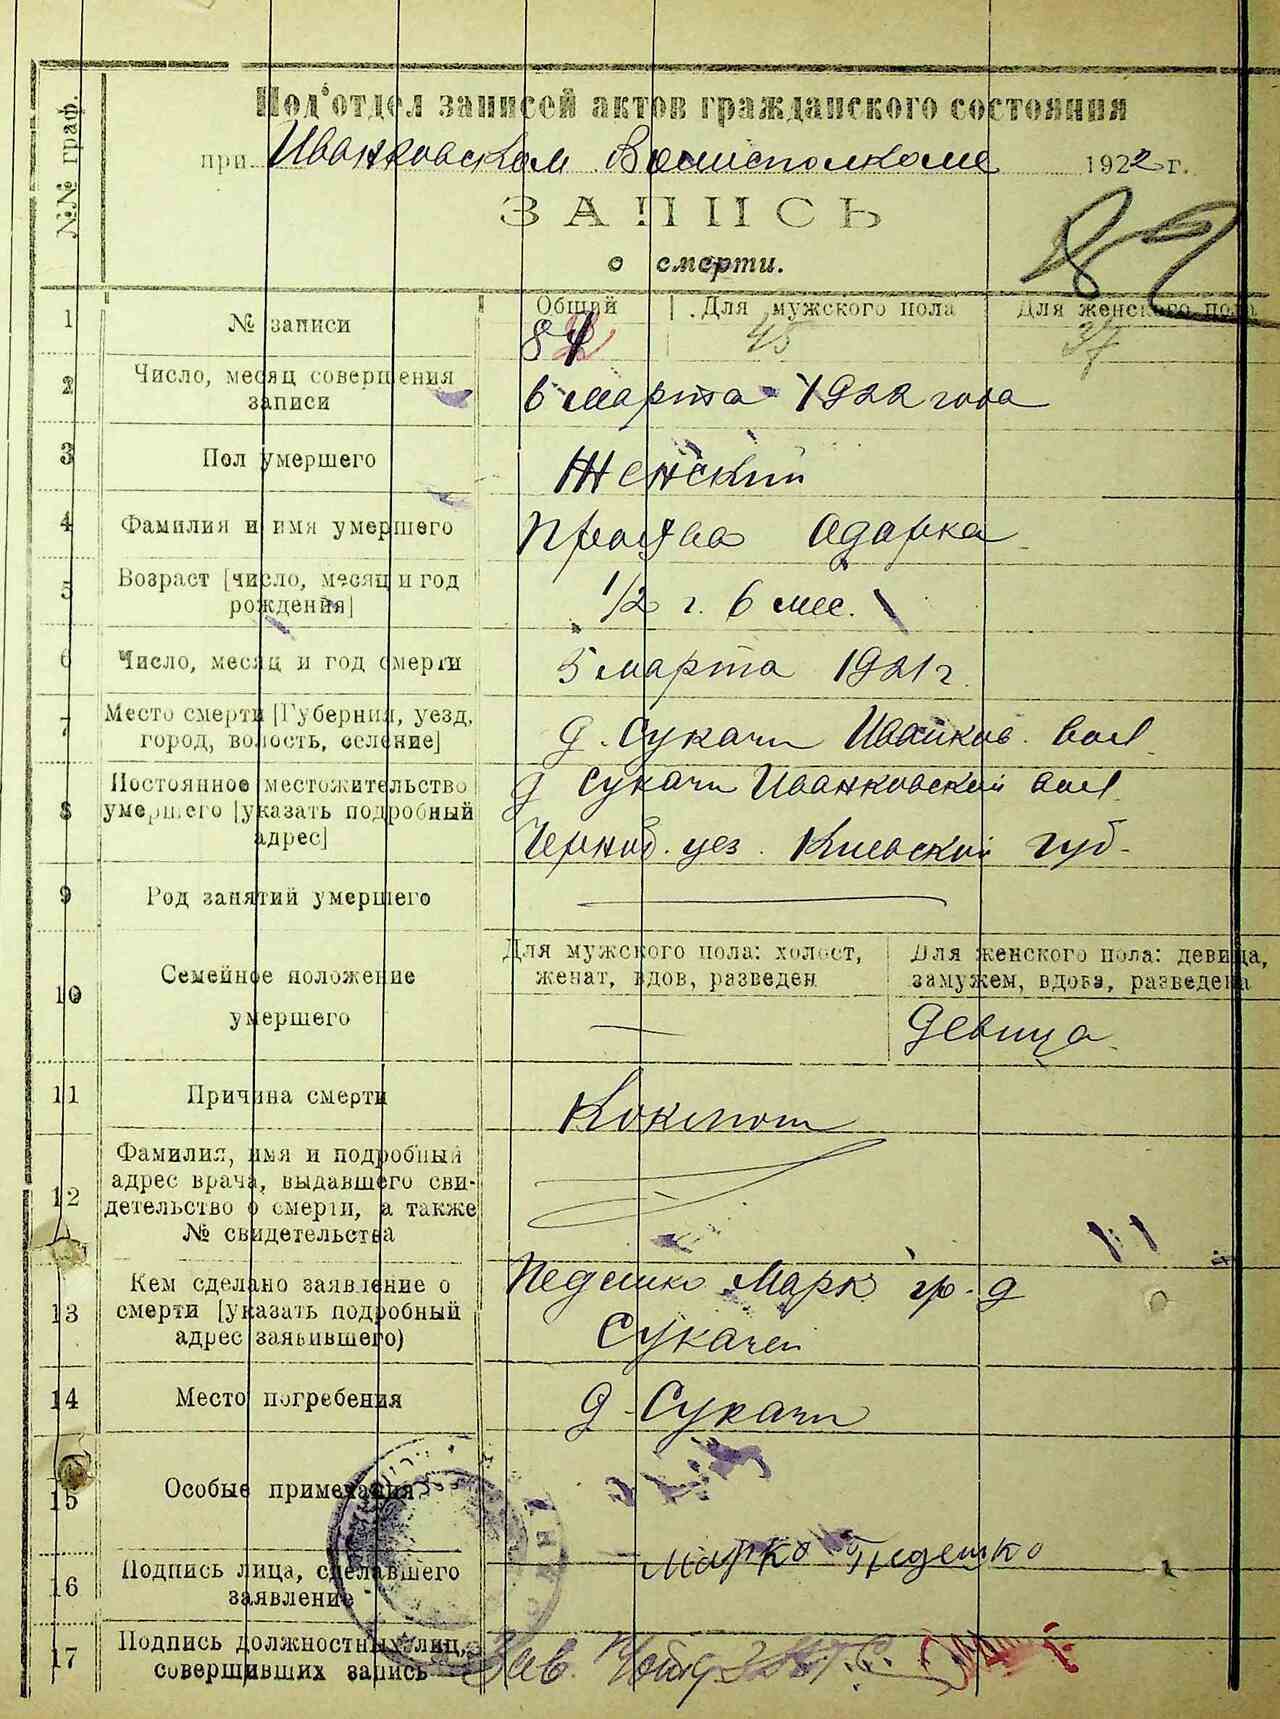 Под'отдел записей актов гражданского состояния
при Иванковском Волисполкоме 1922 г.
ЗАПИСЬ
о смерти.
№№ граф.
1 № записи Общий Для мужского пола Для женского пола
45 37
2 Число, месяц совершения записи 6 марта 1922 года
3 Пол умершего Женский
4 Фамилия и имя умершего Одарка
5 Возраст [число, месяц и год рождения] 1/2 г. 6 мес.
6 Число, месяц и год смерти 5 марта 1921 г
7 Место смерти [Губерния, уезд, город, волость, селение] д. Сукачи Иванков. вол
8 Постоянное местожительство умершего [указать подробный адрес] д Сукачи Иванковской вол
Черноб. уез. Киевской губ.
9 Род занятий умершего
10 Семейное положение умершего
Для мужского пола: холост, женат, вдов, разведен
Для женского пола: девица, замужем, вдова, разведена
девица
11 Причина смерти Коклюш
12 Фамилия, имя и подробный адрес врача, выдавшего свидетельство о смерти, а также № свидетельства
13 Кем сделано заявление о смерти [указать подробный адрес заявившего) Педешко Марк гр. д
Сукачей
14 Место погребения д. Сукачи
15 Особые примечания
16 Подпись лица, сделавшего заявление Марко Педешко
17 Подпись должностных лиц, совершивших запись Зав.